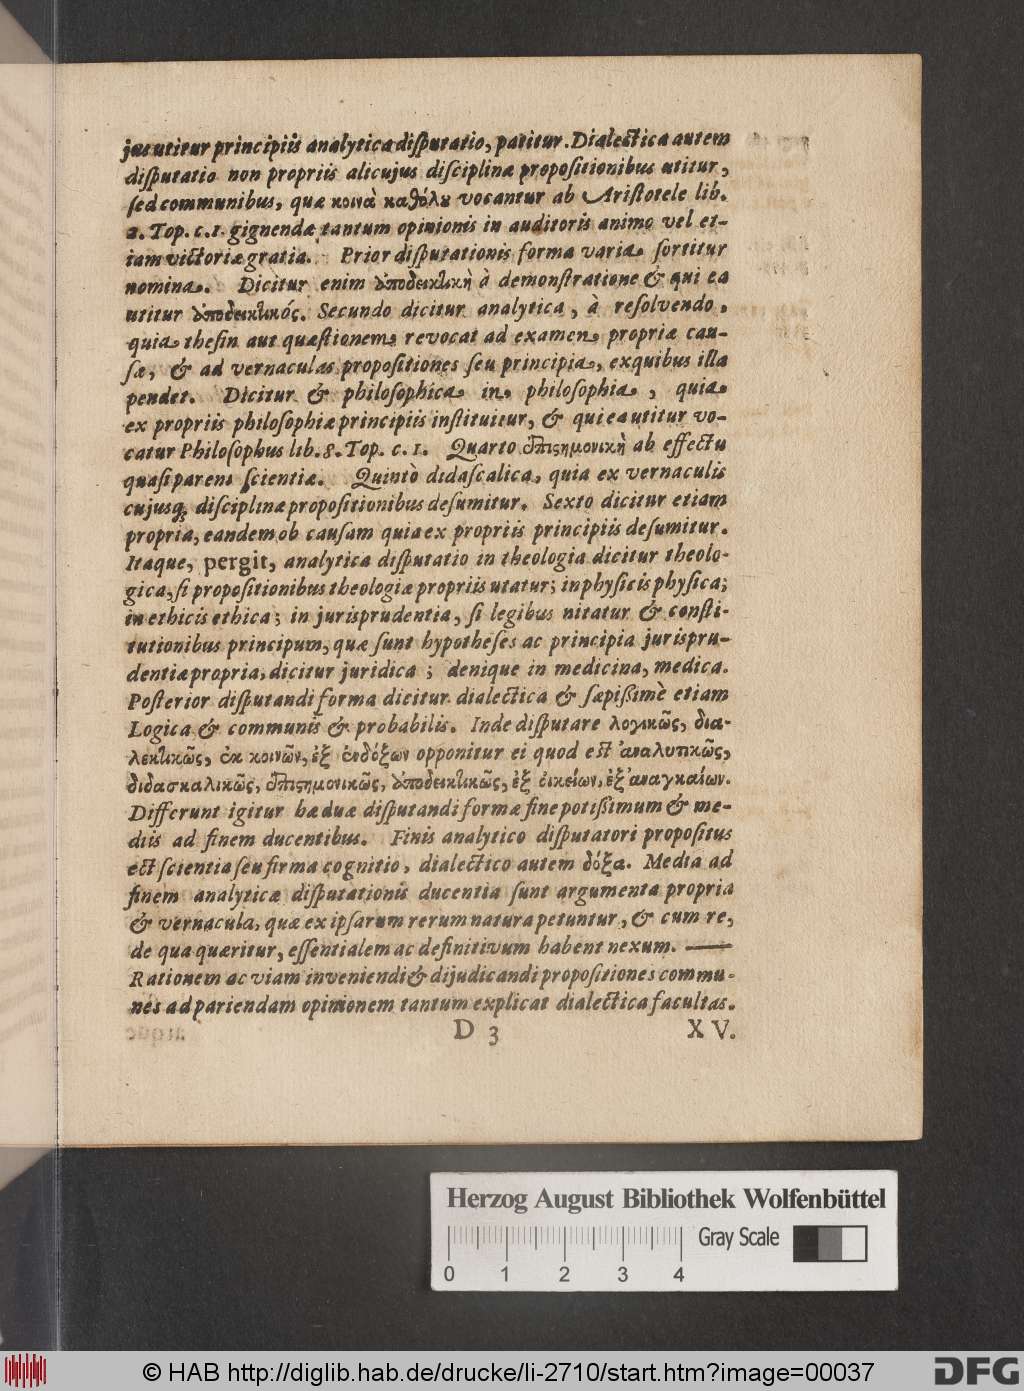 jus utitur principiis analytica disputatio, patitur. Dialectica autem
disputatio non propriis alicujus disciplinæ propositionibus utitur,
sed communibus, quæ κοινὰ καθόλȣ vocantur ab Aristotele lib.
2. Top. c.1. gignendæ tantum opinionis in auditoris animo vel et-
iam victoriæ gratia. Prior disputationis forma varia sortitur
nomina. Dicitur enim ἀποδεικτικὴ à demonstratione & qui ea
utitur ἀποδεικτικός. Secundo dicitur analytica, à resolvendo,
quia thesin aut quæstionem revocat ad examen propriæ cau-
sæ, & ad vernaculas propositiones seu principia, ex quibus illa
pendet. Dicitur & philosophica in philosophia, quia
ex propriis philosophiæ principiis instituitur, & qui ea utitur vo-
catur Philosophus lib. 8. Top. c. 1. Quarto ἐπιϛημονικὴ ab effectu
quasi parens scientiæ. Quintò didascalica, quia ex vernaculis
cujusq; disciplinæ propositionibus desumitur. Sexto dicitur etiam
propria, eandem ob causam quia ex propriis principiis desumitur.
Itaque, pergit, analytica disputatio in theologia dicitur theolo-
gica, si propositionibus theologiæ propriis utatur; in physicis physica;
in ethicis ethica; in jurisprudentia, si legibus nitatur & consti-
tutionibus principum, quæ sunt hypotheses ac principia jurispru-
dentiæ propria, dicitur juridica; denique in medicina, medica.
Posterior disputandi forma dicitur dialectica & sæpißimè etiam
Logica & communis & probabilis. Inde disputare λογικῶς, δια-
λεκτικῶς, ἐκ κοινῶν, ἐξ ἐνδόξων opponitur ei quod est ἀναλυτικῶς,
διδασκαλικῶς, ἐπιϛημονικῶς, ἀποδεικτικῶς, ἐξ οἰκείων, ἐξ ἀναγκαίων.
Differunt igitur hæ duæ disputandi formæ fine potißimum & me-
diis ad finem ducentibus. Finis analytico disputatori propositus
est scientia seu firma cognitio, dialectico autem δόξα. Media ad
finem analyticæ disputationis ducentia sunt argumenta propria
& vernacula, quæ ex ipsarum rerum natura petuntur, & cum re,
de qua quæritur, essentialem ac definitivum habent nexum. ——
Rationem ac viam inveniendi & dijudicandi propositiones commu-
nes ad pariendam opinionem tantum explicat dialectica facultas.
D 3 XV.
Herzog August Bibliothek Wolfenbüttel
Gray Scale
0 1 2 3 4
© HAB http://diglib.hab.de/drucke/li-2710/start.htm?image=00037
DFG